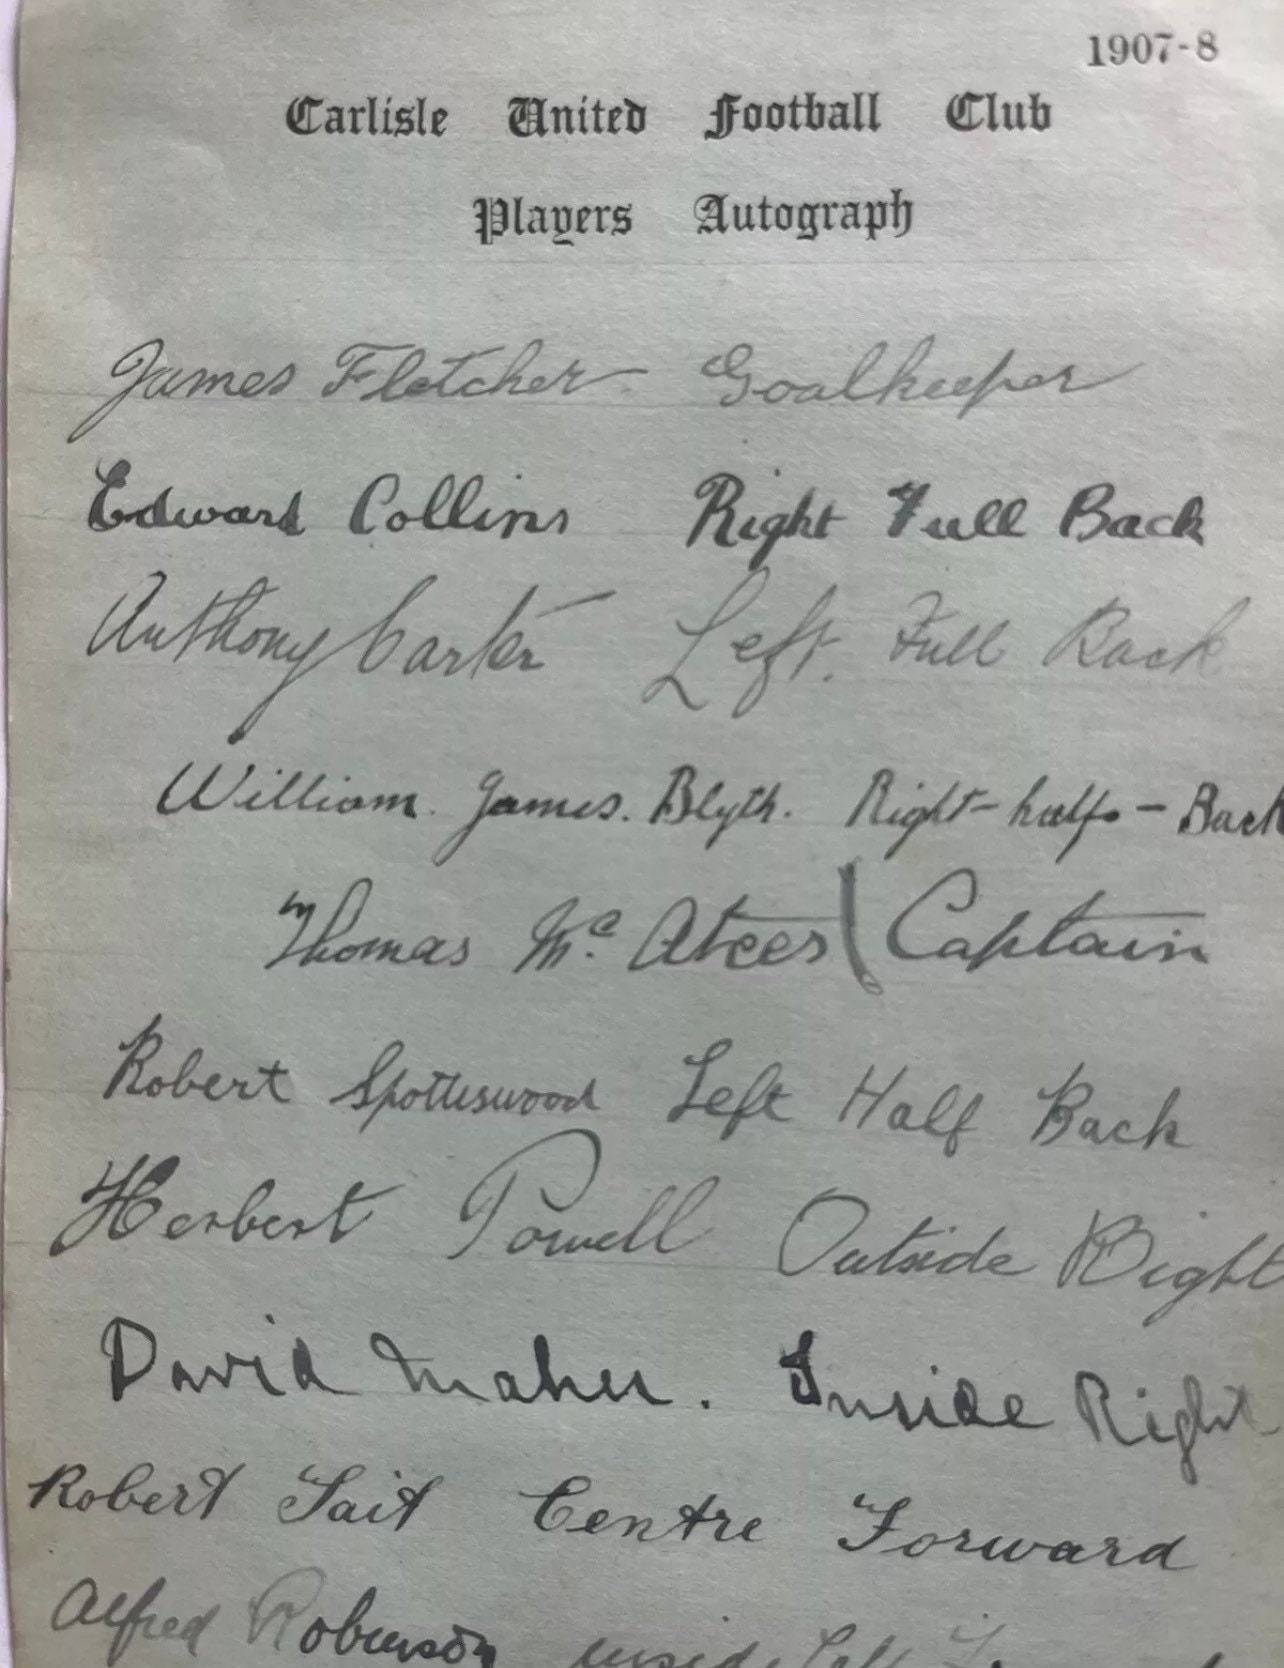 1907-8
Carlisle United Football Club
Players Autograph
James Fletcher Goalkeeper
Edward Collins Right Full Back
Anthony Carter Left. Full Back
William. James. Blyth. Right-half-Back
Thomas Mc. Ateer Captain
Robert Spottiswood Left Half Back
Herbert Powell Outside Right
David Maher. Inside Right
Robert Tait Centre Forward
Alfred Robinson inside Left